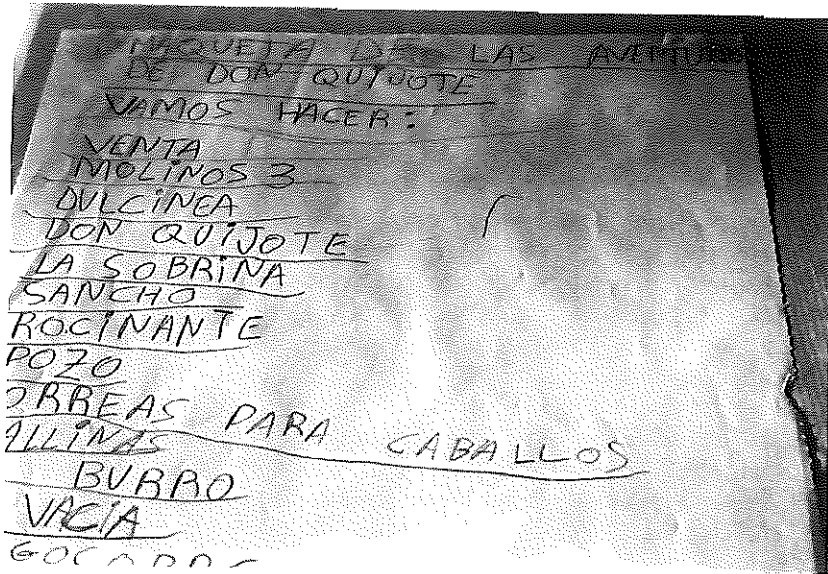 MAQUETA DE LAS
DE DON QUIJOTE
VAMOS HACER:
VENTA
MOLINOS 3
DULCINEA
DON QUIJOTE
LA SOBRINA
SANCHO
ROCINANTE
POZO
ORREAS PARA CABALLOS
ALLINAS
BURRO
VACIA